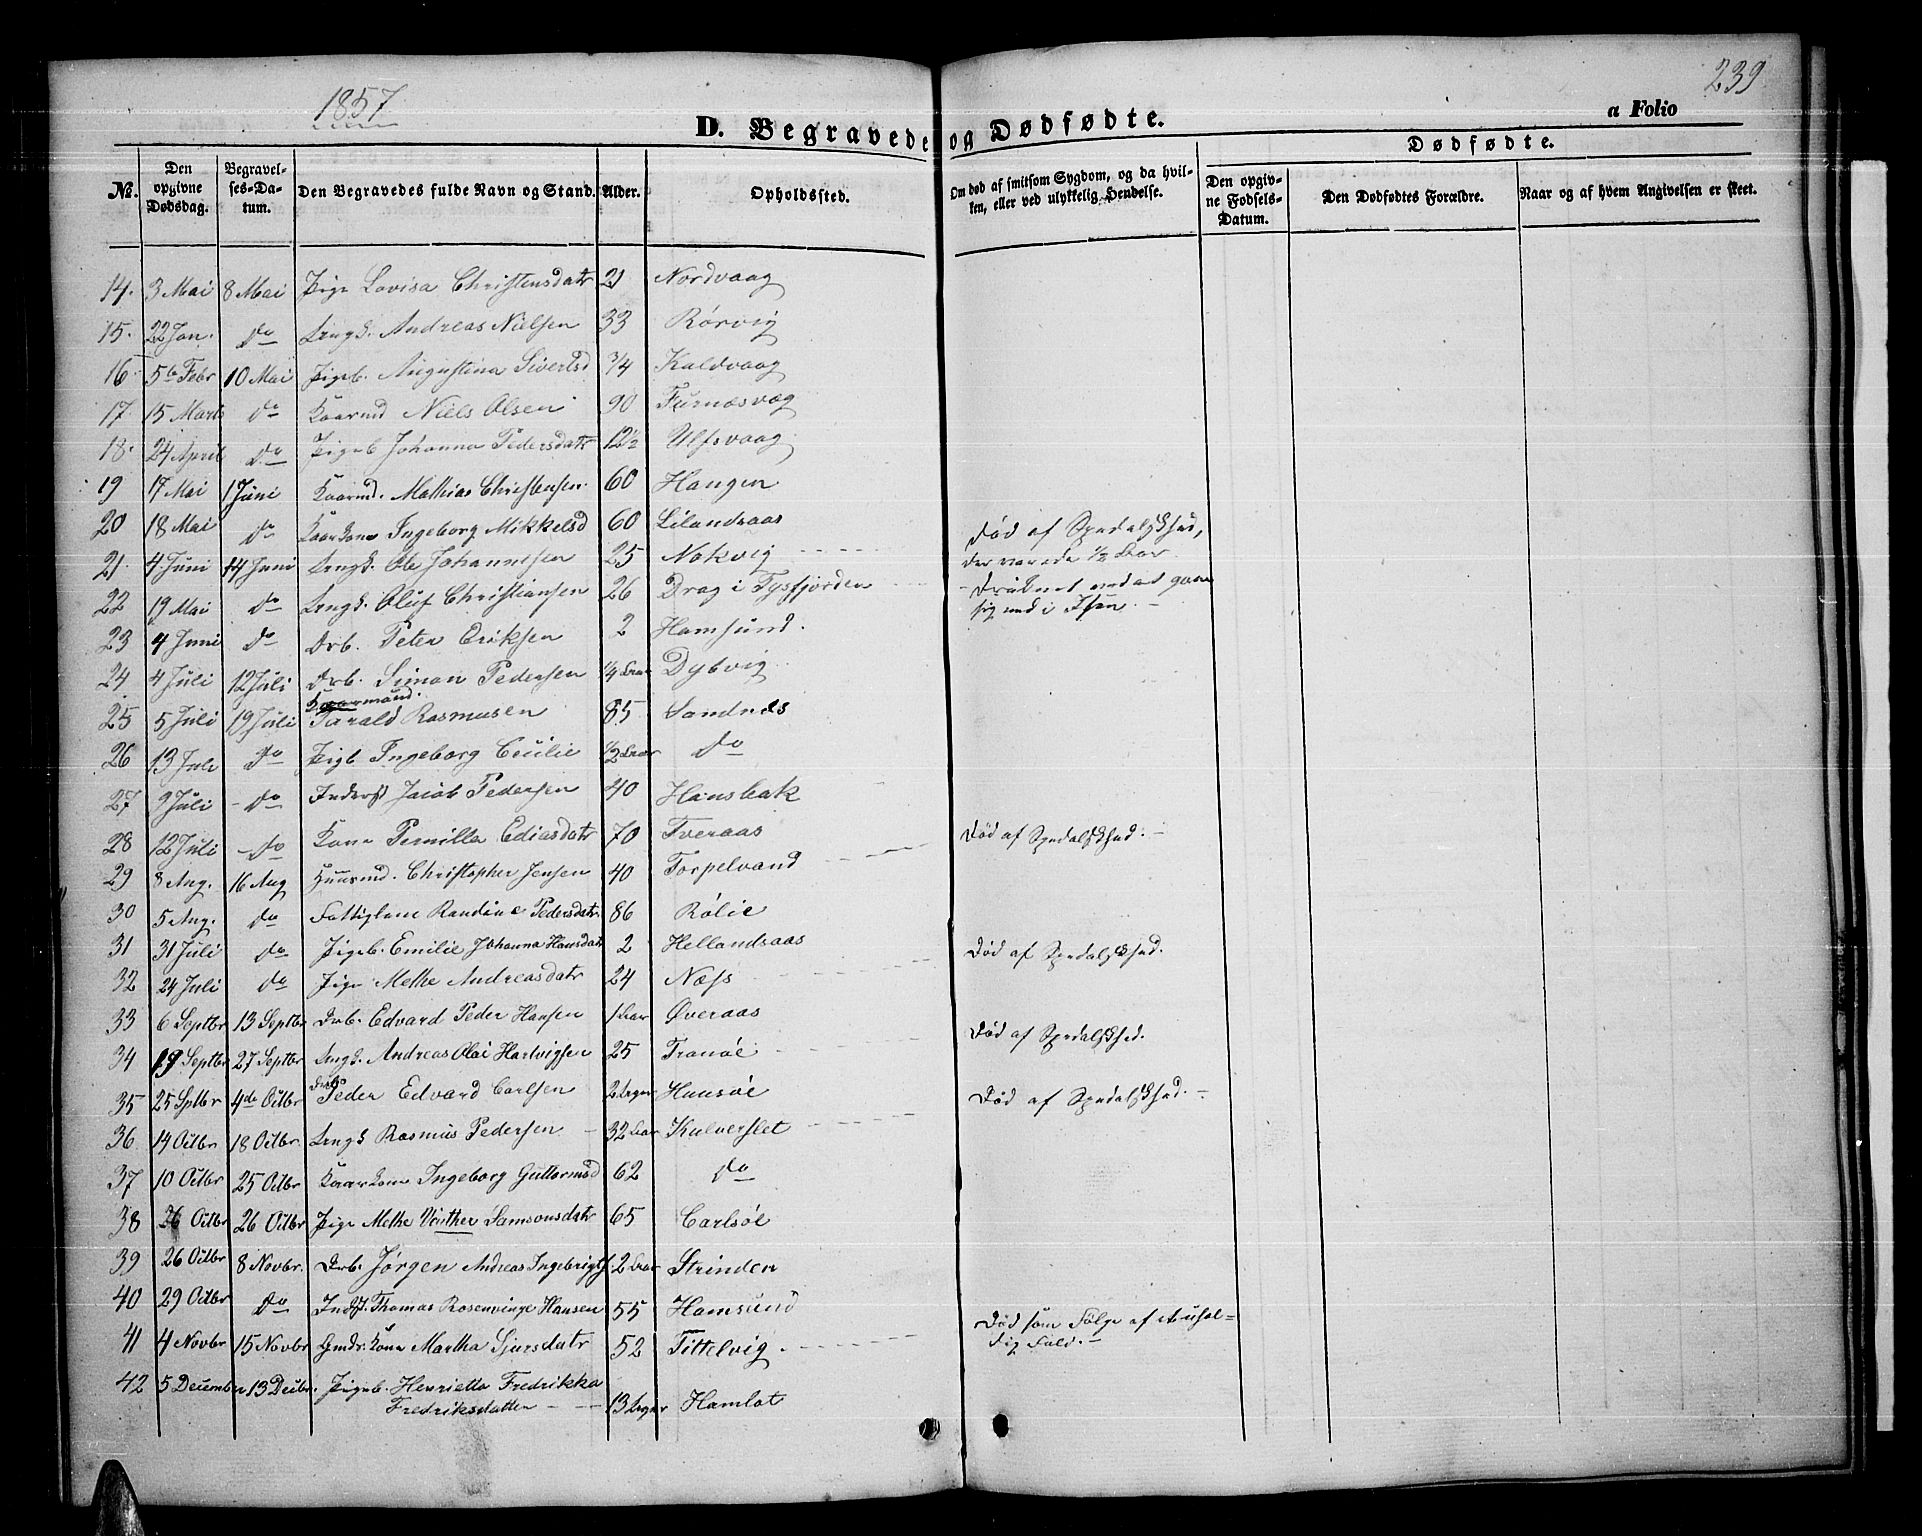 1857
239
a Folio
D. Begravede og Dødfødte.
Dødfødte.
No. Den opgivne Dødsdag. Begravelses-Datum. Den Begravedes fulde Navn og Stand. Alder. Opholdssted. Om død af smitsom Sygdom, og da hvilken, eller ved ulykkelig Hendelse. Den opgivne Fødsels-Datum. Den Dødfødtes Forældre. Naar og af hvem Angivelsen er skeet.
14. 3 Mai 8 Mai Pige Lovisa Christensdatr 21 Nordvaag
15. 22 Jan. do Ungk. Andreas Nielsen 33 Rørvig
16. 5te Febr 10 Mai Pigeb. Augustina Sivertsd 3/4 Kaldvaag
17. 15 Marts do Kaarmd Niels Olsen 90 Furnæsvæg
18. 24 April do Pigeb Johanna Pedersdatr 12½ Ulfsvaag
19 17 Mai 1 Juni Kaarmd. Mathias Christensen. 60 Haugen
20 18 Mai do Kaarkone Ingeborg Mikkelsd 60 Lilandsaas Død af Spedalskhed,
21. 4 Juni 14 Juni Ungk. Ole Johannesen 25 Nokvig der varede ½ Aar.
22 19 Mai do Ungk. Oluf Christiansen 26 Drag i Tysfjorden Druknet ved at gaae
sig ned i Isen.
23 4 Juni do Drb. Peter Eriksen 2 Hamsund.
24 4 Juli 12 Juli Drb. Simon Pedersen ¼ Aar Dybvig
25 5 Juli 19 Juli Kaarmand. Tarald Rasmusen 85 Sandnes
26 13 Juli do Pigb Ingeborg Cecilie ½ Aar do
27 9 Juli do Inderst Jacob Pedersen 40 Hansbak
28 12 Juli do Kone Pernilla Ediasdatr 70 Tveraas Død af Spedalskhed.
29 8 Aug. 16 Aug Huusmd. Christopher Jensen 40 Torpelvand
30 5 Aug. do Fattiglem Randine Pedersdatr. 86 Rølie
31 31 Juli do Pigeb. Emilie Johanna Hansdatr 2 Hellandsaas Død af Spedalskhed.
32 24 Juli do Pige Methe Andreasdatr 24 Næss
33 6 Septbr 13 Septbr Drb. Edvard Peder Hansen 1 Aar Øveraas Død af Spedalskhed.
34 19 Septbr 27 Septbr Ungk. Andreas Olai Hartvigsen 25 Tranøe
35 25 Sptbr 4de Octbr Drb. Peder Edvard Carlsen 2 Uger Hunsøe Død af Spedalskhed.
36 14 Octbr 18 Octbr Ungk Rasmus Pedersen 32 Aar Kulverslet
37 10 Octbr 25 Octbr Kaarkone Ingeborg Guttormsd 62 do
38 Octbr 26 Octbr Pige Methe Samsonsdatr 65 Carlsøe
39 26 Octbr 8 Novbr. Drb. Jørgen Andreas Ingebrigts. 2 Aar Strinden
40 29 Octbr do Indst. Thomas Rosenvinge Hansen 55 Hamsund
41 4 Novbr 15 Novbr Gmdr. Kone Martha Sjursdatr 52 Tittelvig Død som Følge af et uhel-
dig Fald.
42 5 December 13 Decbr. Pigeb. Henrietta Fredrikka
Fredriksdatter 13 Uger Hamlot